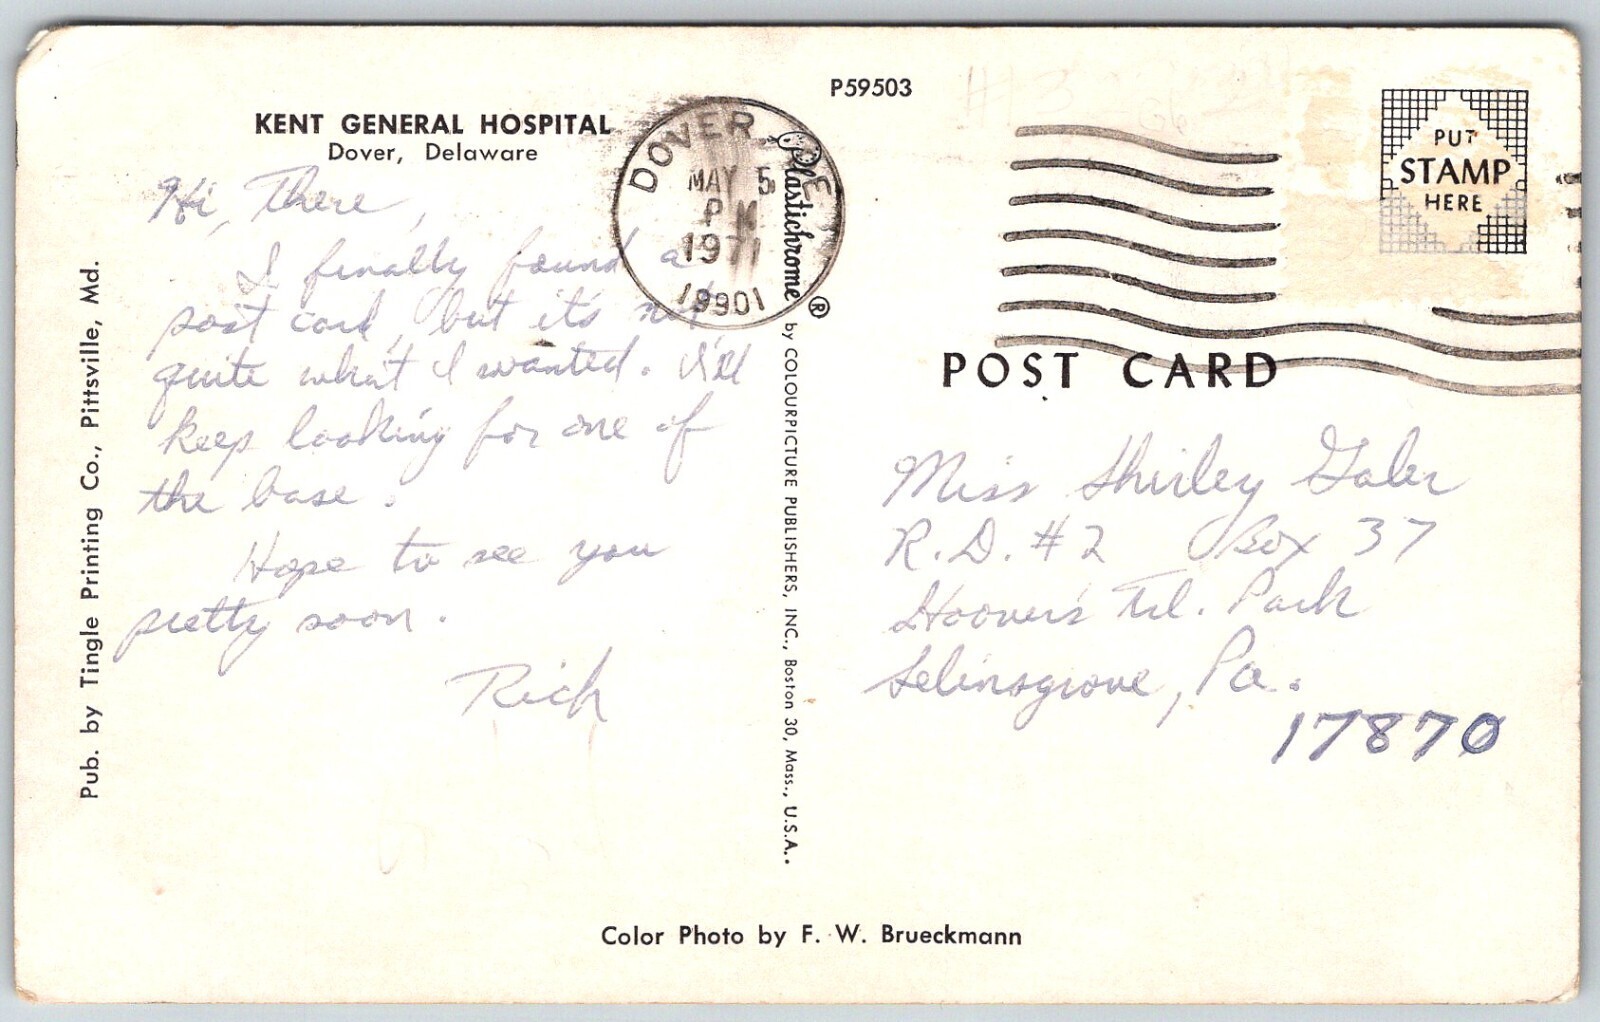 P59503
KENT GENERAL HOSPITAL
Dover, Delaware
DOVER, DE
MAY 5
PM
1971
19901
PUT
STAMP
HERE
Hi, There,
I finally found a
post card, but it's not
quite what I wanted. I'll
keep looking for one of
the base.
Hope to see you
pretty soon.
Rich
Pub. by Tingle Printing Co., Pittsville, Md.
Plastichrome ® by COLOURPICTURE PUBLISHERS, INC., Boston 30, Mass., U.S.A.
POST CARD
Miss Shirley Galer
R.D. #2 Box 37
Hoover's Trl. Park
Selinsgrove, Pa.
17870
Color Photo by F. W. Brueckmann